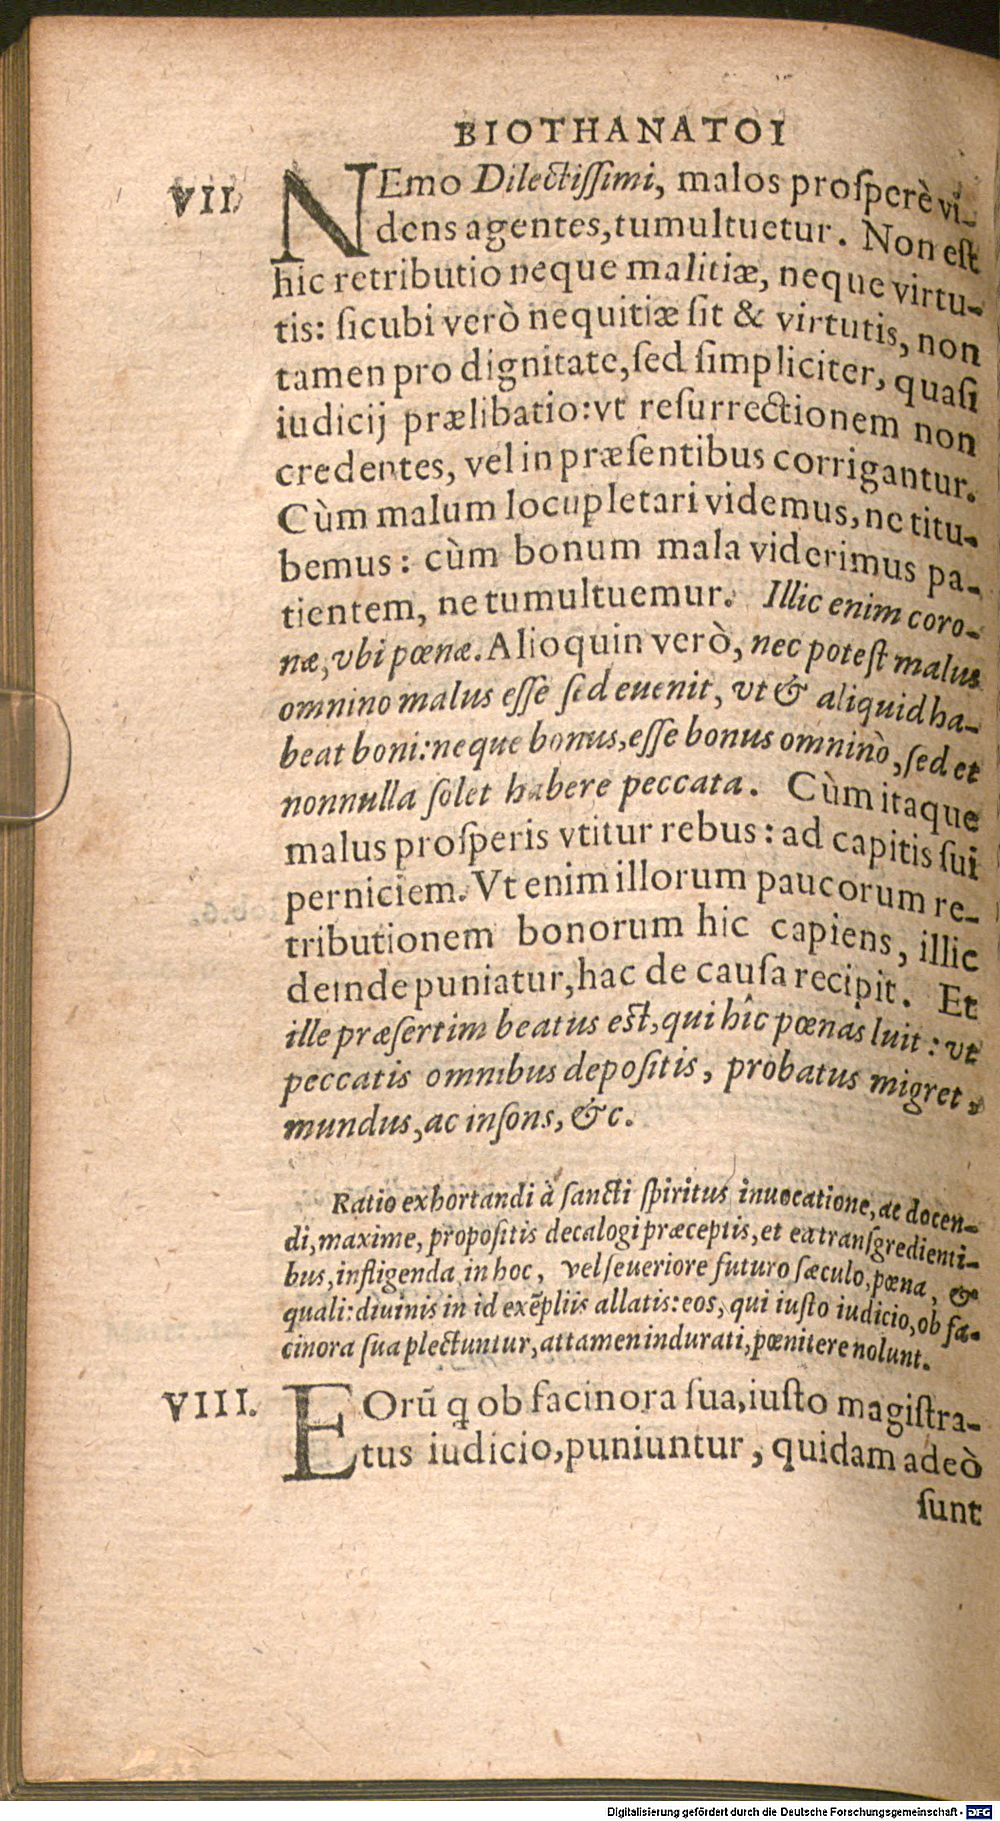 BIOTHANATOI
VII. NEmo Dilectiſſimi, malos proſperè vi-
dens agentes, tumultuetur. Non eſt
hic retributio neque malitiæ, neque virtu-
tis: ſicubi verò nequitiæ ſit & virtutis, non
tamen pro dignitate, ſed ſimpliciter, quaſi
iudicij prælibatio: vt reſurrectionem non
credentes, vel in præſentibus corrigantur.
Cùm malum locupletari videmus, ne titu-
bemus: cùm bonum mala viderimus pa-
tientem, ne tumultuemur. Illic enim coro-
næ, vbi pœnæ. Alioquin verò, nec poteſt malus
omnino malus eſſe ſed euenit, vt & aliquid ha-
beat boni: neque bonus, eſſe bonus omninò, ſed et
nonnulla ſolet habere peccata. Cùm itaque
malus proſperis vtitur rebus: ad capitis ſui
perniciem. Vt enim illorum paucorum re-
tributionem bonorum hic capiens, illic
deinde puniatur, hac de cauſa recipit. Et
ille præſertim beatus eſt, qui hîc pœnas luit: vt
peccatis omnibus depoſitis, probatus migret,
mundus, ac inſons, &c.
Ratio exhortandi à ſancti ſpiritus inuocatione, ac docen-
di, maxime, propoſitis decalogi præceptis, et ea tranſgredienti-
bus, infligenda in hoc, vel ſeueriore futuro ſæculo, pœna, &
quali: diuinis in id exẽpliis allatis: eos, qui iuſto iudicio, ob fa-
cinora ſua plectuntur, attamen indurati, pœnitere nolunt.
VIII. EOrũ ꝗ ob facinora ſua, iuſto magiſtra-
tus iudicio, puniuntur, quidam adeò
ſunt
Digitalisierung gefördert durch die Deutsche Forschungsgemeinschaft - DFG